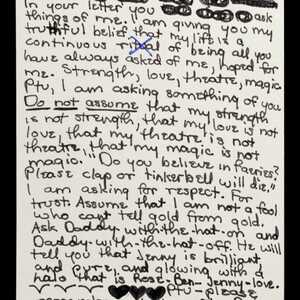 In your letter ask
things of me. I am giving you my
truthful belief that my life is a
continuous ritual of being all you
have always asked of me, hoped for
me. Strength, love, theatre, magic
Ptu, I am asking something of you
Do not assume that my strength
is not strength, that my love is not
love, that my theatre is not
theatre, that my magic is not
magic. "Do you believe in faeries?
Please clap or tinkerbell will die."
I am asking for respect. For
trust. Assume that I am not a fool
who cant tell gold from gold.
Ask Daddy-with-the-hat-on and
Daddy-with-the-hat-off. He will
tell you that Jenny is brilliant
and pure, and glowing with a
halo that is Rose-Ben-Jenny-love.
Ptu-please